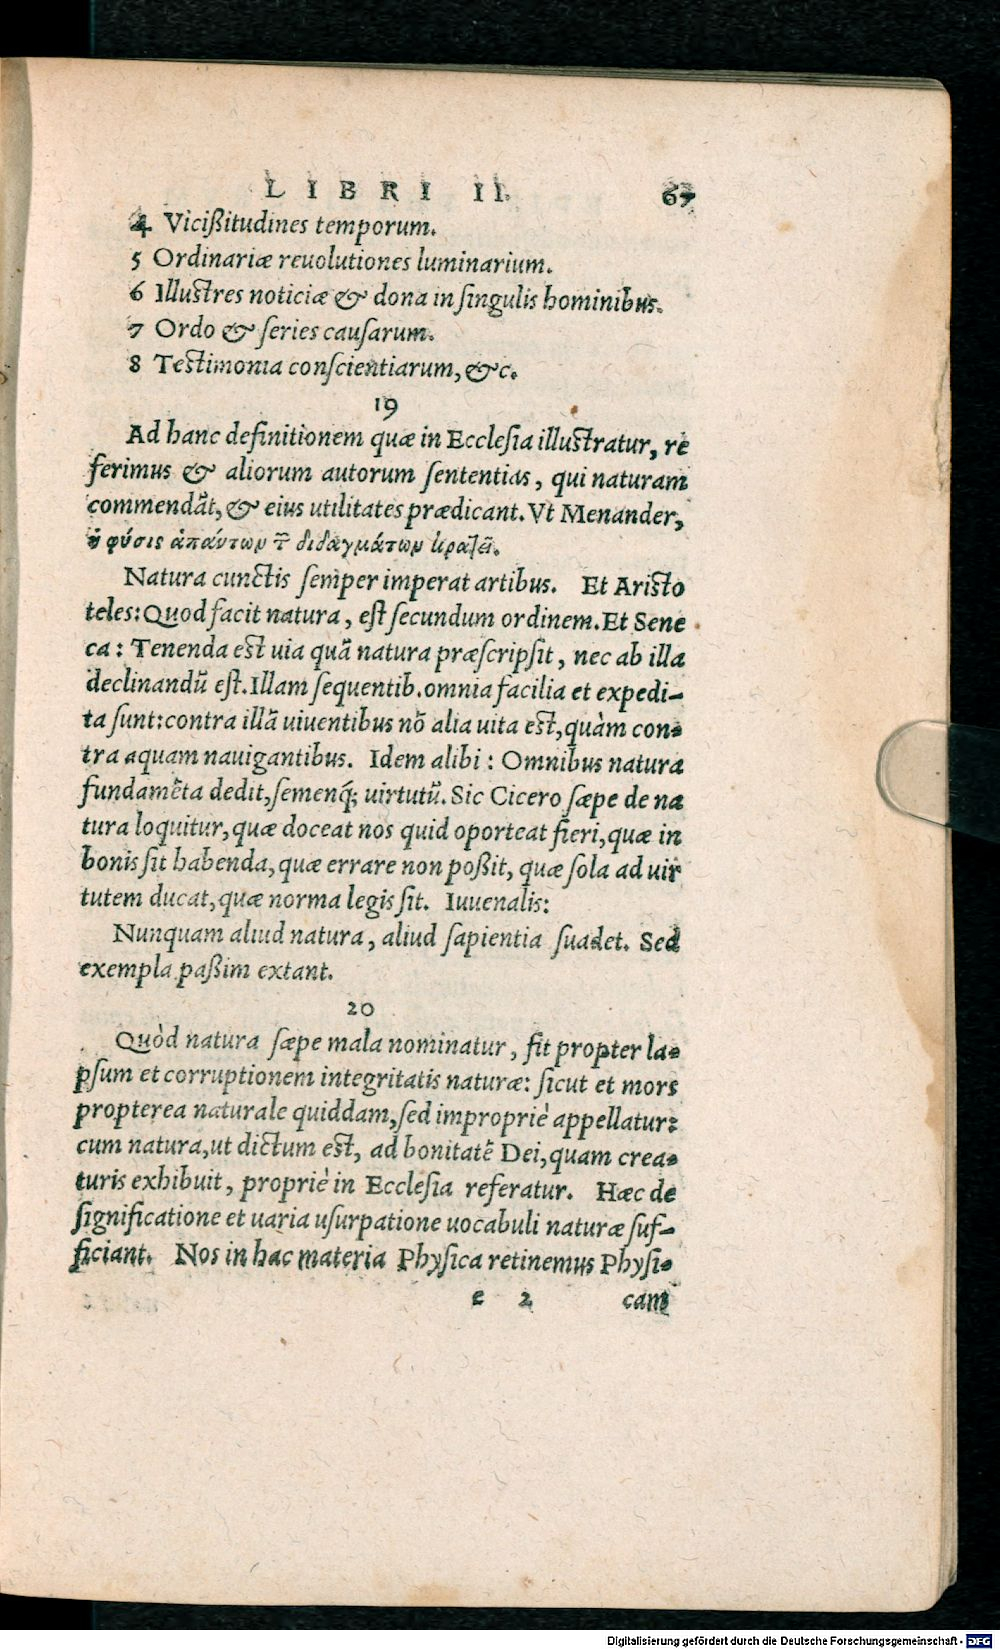 LIBRI II. 67
4 Vicißitudines temporum.
5 Ordinariæ reuolutiones luminarium.
6 Illustres noticiæ & dona in singulis hominibus.
7 Ordo & series causarum.
8 Testimonia conscientiarum, &c.
19
Ad hanc definitionem quæ in Ecclesia illustratur, re
ferimus & aliorum autorum sententias, qui naturam
commendāt, & eius utilitates prædicant. Vt Menander,
φύσις ἁπάντων διδαγμάτων
Natura cunctis semper imperat artibus. Et Aristo
teles: Quod facit natura, est secundum ordinem. Et Sene
ca: Tenenda est uia quā natura præscripsit, nec ab illa
declinandū est. Illam sequentib. omnia facilia et expedi-
ta sunt: contra illā uiuentibus nō alia uita est, quàm con-
tra aquam nauigantibus. Idem alibi: Omnibus natura
fundamēta dedit, semenq́; uirtutū. Sic Cicero sæpe de na
tura loquitur, quæ doceat nos quid oporteat fieri, quæ in
bonis sit habenda, quæ errare non poßit, quæ sola ad uir
tutem ducat, quæ norma legis sit. Iuuenalis:
Nunquam aliud natura, aliud sapientia suadet. Sed
exempla paßim extant.
20
Quòd natura sæpe mala nominatur, fit propter la-
psum et corruptionem integritatis naturæ: sicut et mors
propterea naturale quiddam, sed impropriè appellatur:
cum natura, ut dictum est, ad bonitatē Dei, quam crea-
turis exhibuit, propriè in Ecclesia referatur. Hæc de
significatione et uaria usurpatione uocabuli naturæ suf-
ficiant. Nos in hac materia Physica retinemus Physi-
e 2 cam
Digitalisierung gefördert durch die Deutsche Forschungsgemeinschaft - DFG